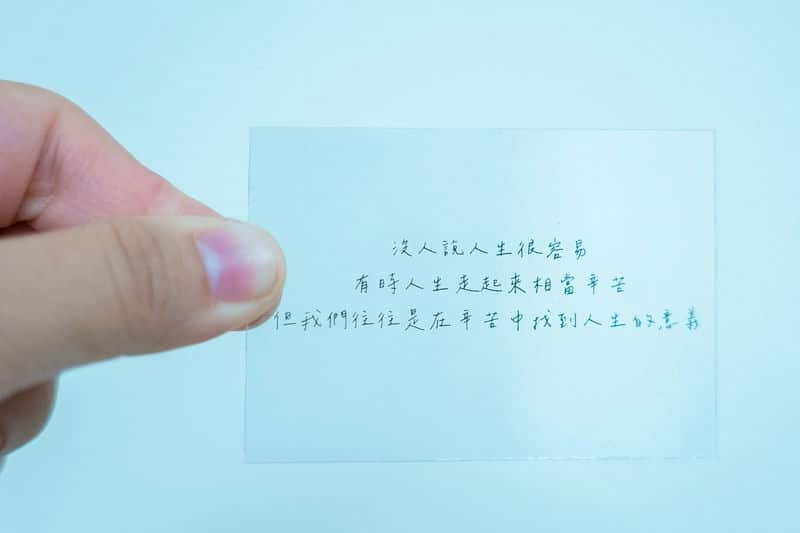 沒人說人生很容易
有時人生走起來相當辛苦
但我們往往是在辛苦中找到人生的意義